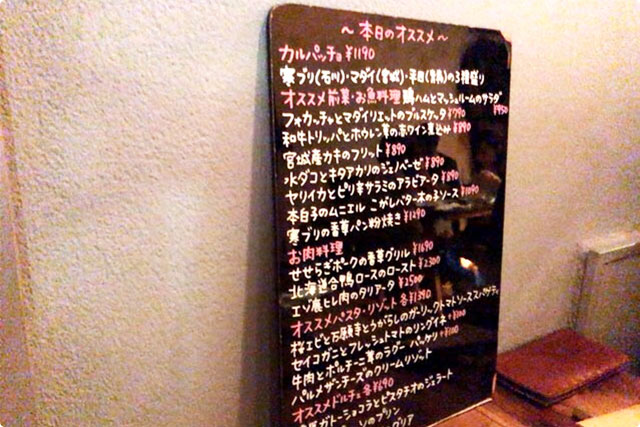 ～本日のオススメ～
カルパッチョ ¥1190
寒ブリ(石川)・マダイ(宮城)・平目(青森)の3種盛り
オススメ前菜・お魚料理 鴨ハムとマッシュルームのサラダ ¥950
フォカッチャとマダイリエットのブルスケッタ ¥790
和牛トリッパとホウレン草の赤ワイン煮込み ¥890
宮城産カキのフリット ¥890
水ダコとキタアカリのジェノベーゼ ¥890
ヤリイカとピリ辛サラミのアラビアータ ¥890
本白子のムニエル こがしバター木の子ソース ¥1090
寒ブリの香草パン粉焼き ¥1290
お肉料理
せせらぎポークの香草グリル ¥1690
北海道合鴨ロースのロースト ¥2300
エゾ鹿ヒレ肉のタリアータ ¥2500
オススメパスタ・リゾット 各¥1390
桜エビと万願寺とうがらしのガーリックトマトソーススパゲティ
セイコガニとフレッシュトマトのリングイネ +¥100
牛肉とポルチーニ茸のラグー パッケリ +¥110
パルメザンチーズのクリームリゾット
オススメドルチェ 各¥690
ガトーショコラとピスタチオのジェラート
のプリン